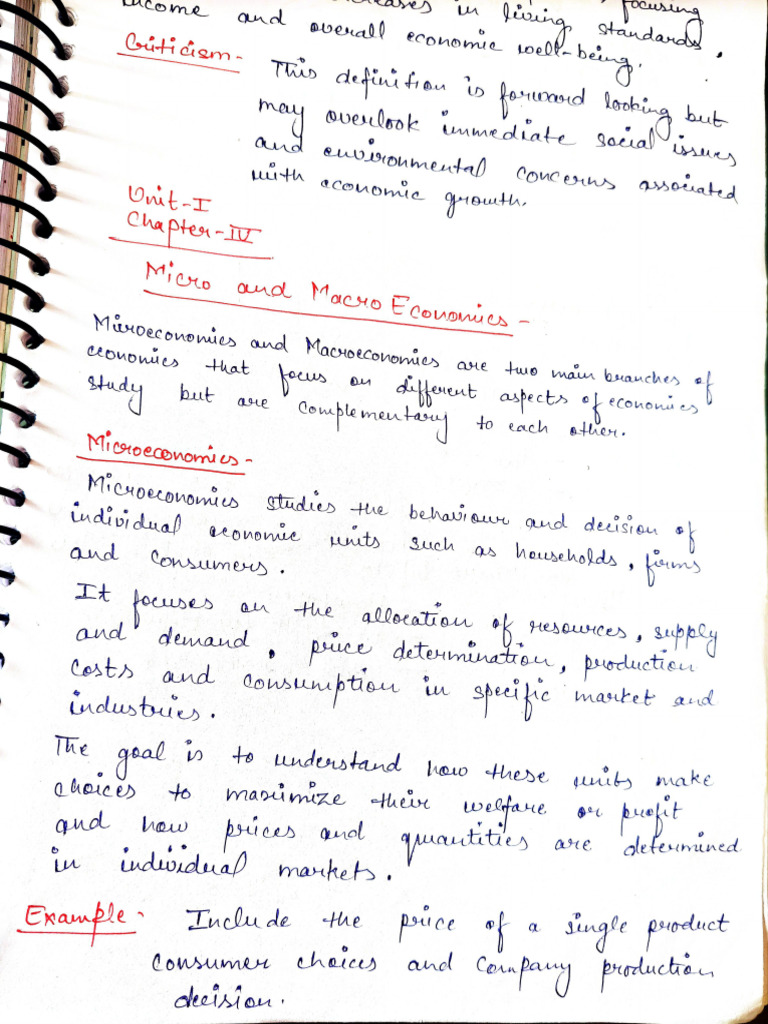 increases in living, focusing
income and overall economic well-being. standards,
Criticism- This definition is forward looking but
may overlook immediate social issues
and environmental concerns associated
with economic growth.
Unit-I
Chapter-IV
Micro and Macro Economics-
Microeconomics and Macroeconomics are two main branches of
economics that focus on different aspects of economics
study but are complementary to each other.
Microeconomics-
Microeconomics studies the behaviour and decision of
individual economic units such as households, firms
and consumers.
It focuses on the allocation of resources, supply
and demand, price determination, production
costs and consumption in specific market and
industries.
The goal is to understand how these units make
choices to maximize their welfare or profit
and how prices and quantities are determined
in individual markets.
Example- Include the price of a single product
consumer choices and company production
decision.